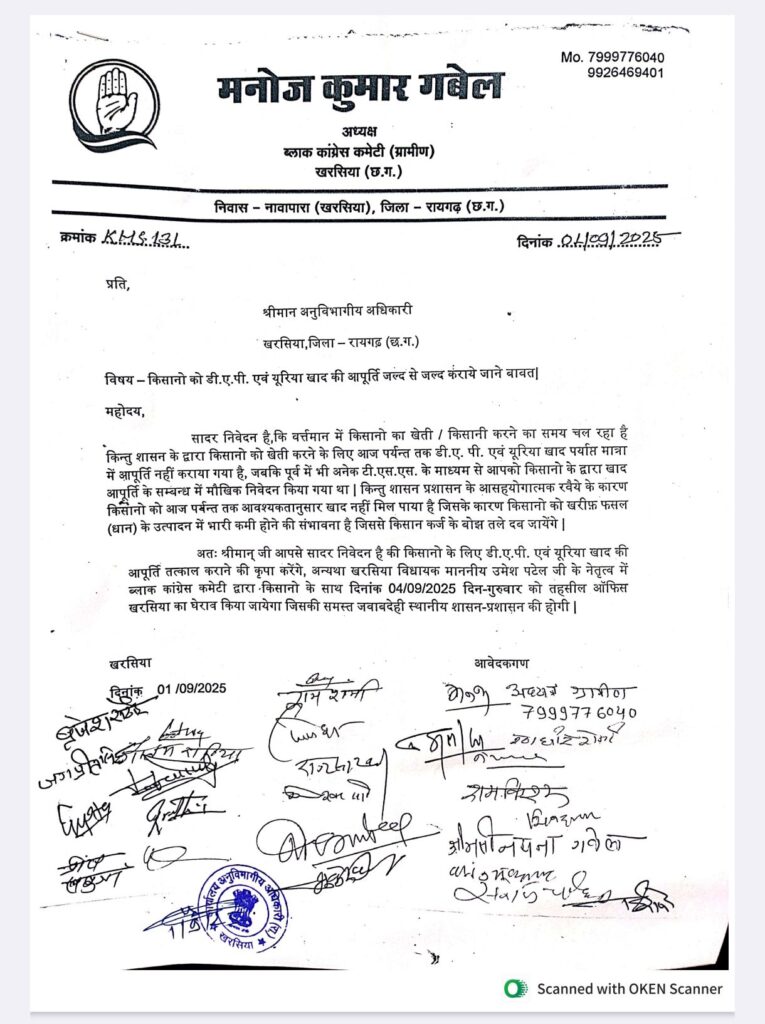 Mo. 7999776040
9926469401
मनोज कुमार गबेल
अध्यक्ष
ब्लाक कांग्रेस कमेटी (ग्रामीण)
खरसिया (छ.ग.)
निवास – नावापारा (खरसिया), जिला – रायगढ़ (छ.ग.)
क्रमांक KMS131
दिनांक 01/09/2025
प्रति,
श्रीमान अनुविभागीय अधिकारी
खरसिया,जिला – रायगढ़ (छ.ग.)
विषय – किसानो को डी.ए.पी. एवं यूरिया खाद की आपूर्ति जल्द से जल्द कराये जाने वावत|
महोदय,
सादर निवेदन है,कि वर्त्तमान में किसानो का खेती / किसानी करने का समय चल रहा है
किन्तु शासन के द्वारा किसानो को खेती करने के लिए आज पर्यन्त तक डी.ए. पी. एवं यूरिया खाद पर्याप्त मात्रा
में आपूर्ति नहीं कराया गया है, जबकि पूर्व में भी अनेक टी.एस.एस. के माध्यम से आपको किसानो के द्वारा खाद
आपूर्ति के सम्बन्ध में मौखिक निवेदन किया गया था | किन्तु शासन प्रशासन के आसहयोगात्मक रवैये के कारण
किसानो को आज पर्यन्त तक आवश्यकतानुसार खाद नहीं मिल पाया है जिसके कारण किसानो को खरीफ़ फसल
(धान) के उत्पादन में भारी कमी होने की संभावना है जिससे किसान कर्ज के बोझ तले दब जायेंगे |
अतः श्रीमान् जी आपसे सादर निवेदन है की किसानो के लिए डी.ए.पी. एवं यूरिया खाद की
आपूर्ति तत्काल कराने की कृपा करेंगे, अन्यथा खरसिया विधायक माननीय उमेश पटेल जी के नेतृत्व में
ब्लाक कांग्रेस कमेटी द्वारा किसानो के साथ दिनांक 04/09/2025 दिन-गुरुवार को तहसील ऑफिस
खरसिया का घेराव किया जायेगा जिसकी समस्त जवाबदेही स्थानीय शासन-प्रशासन की होगी |
खरसिया
आवेदकगण
दिनांक 01 /09/2025
अध्यक्ष ग्रामीण
7999776040
राम शर्मा
श्रीमती नयना गबेल
कार्यालय अनुविभागीय अधिकारी (रा.)
खरसिया
Scanned with OKEN Scanner